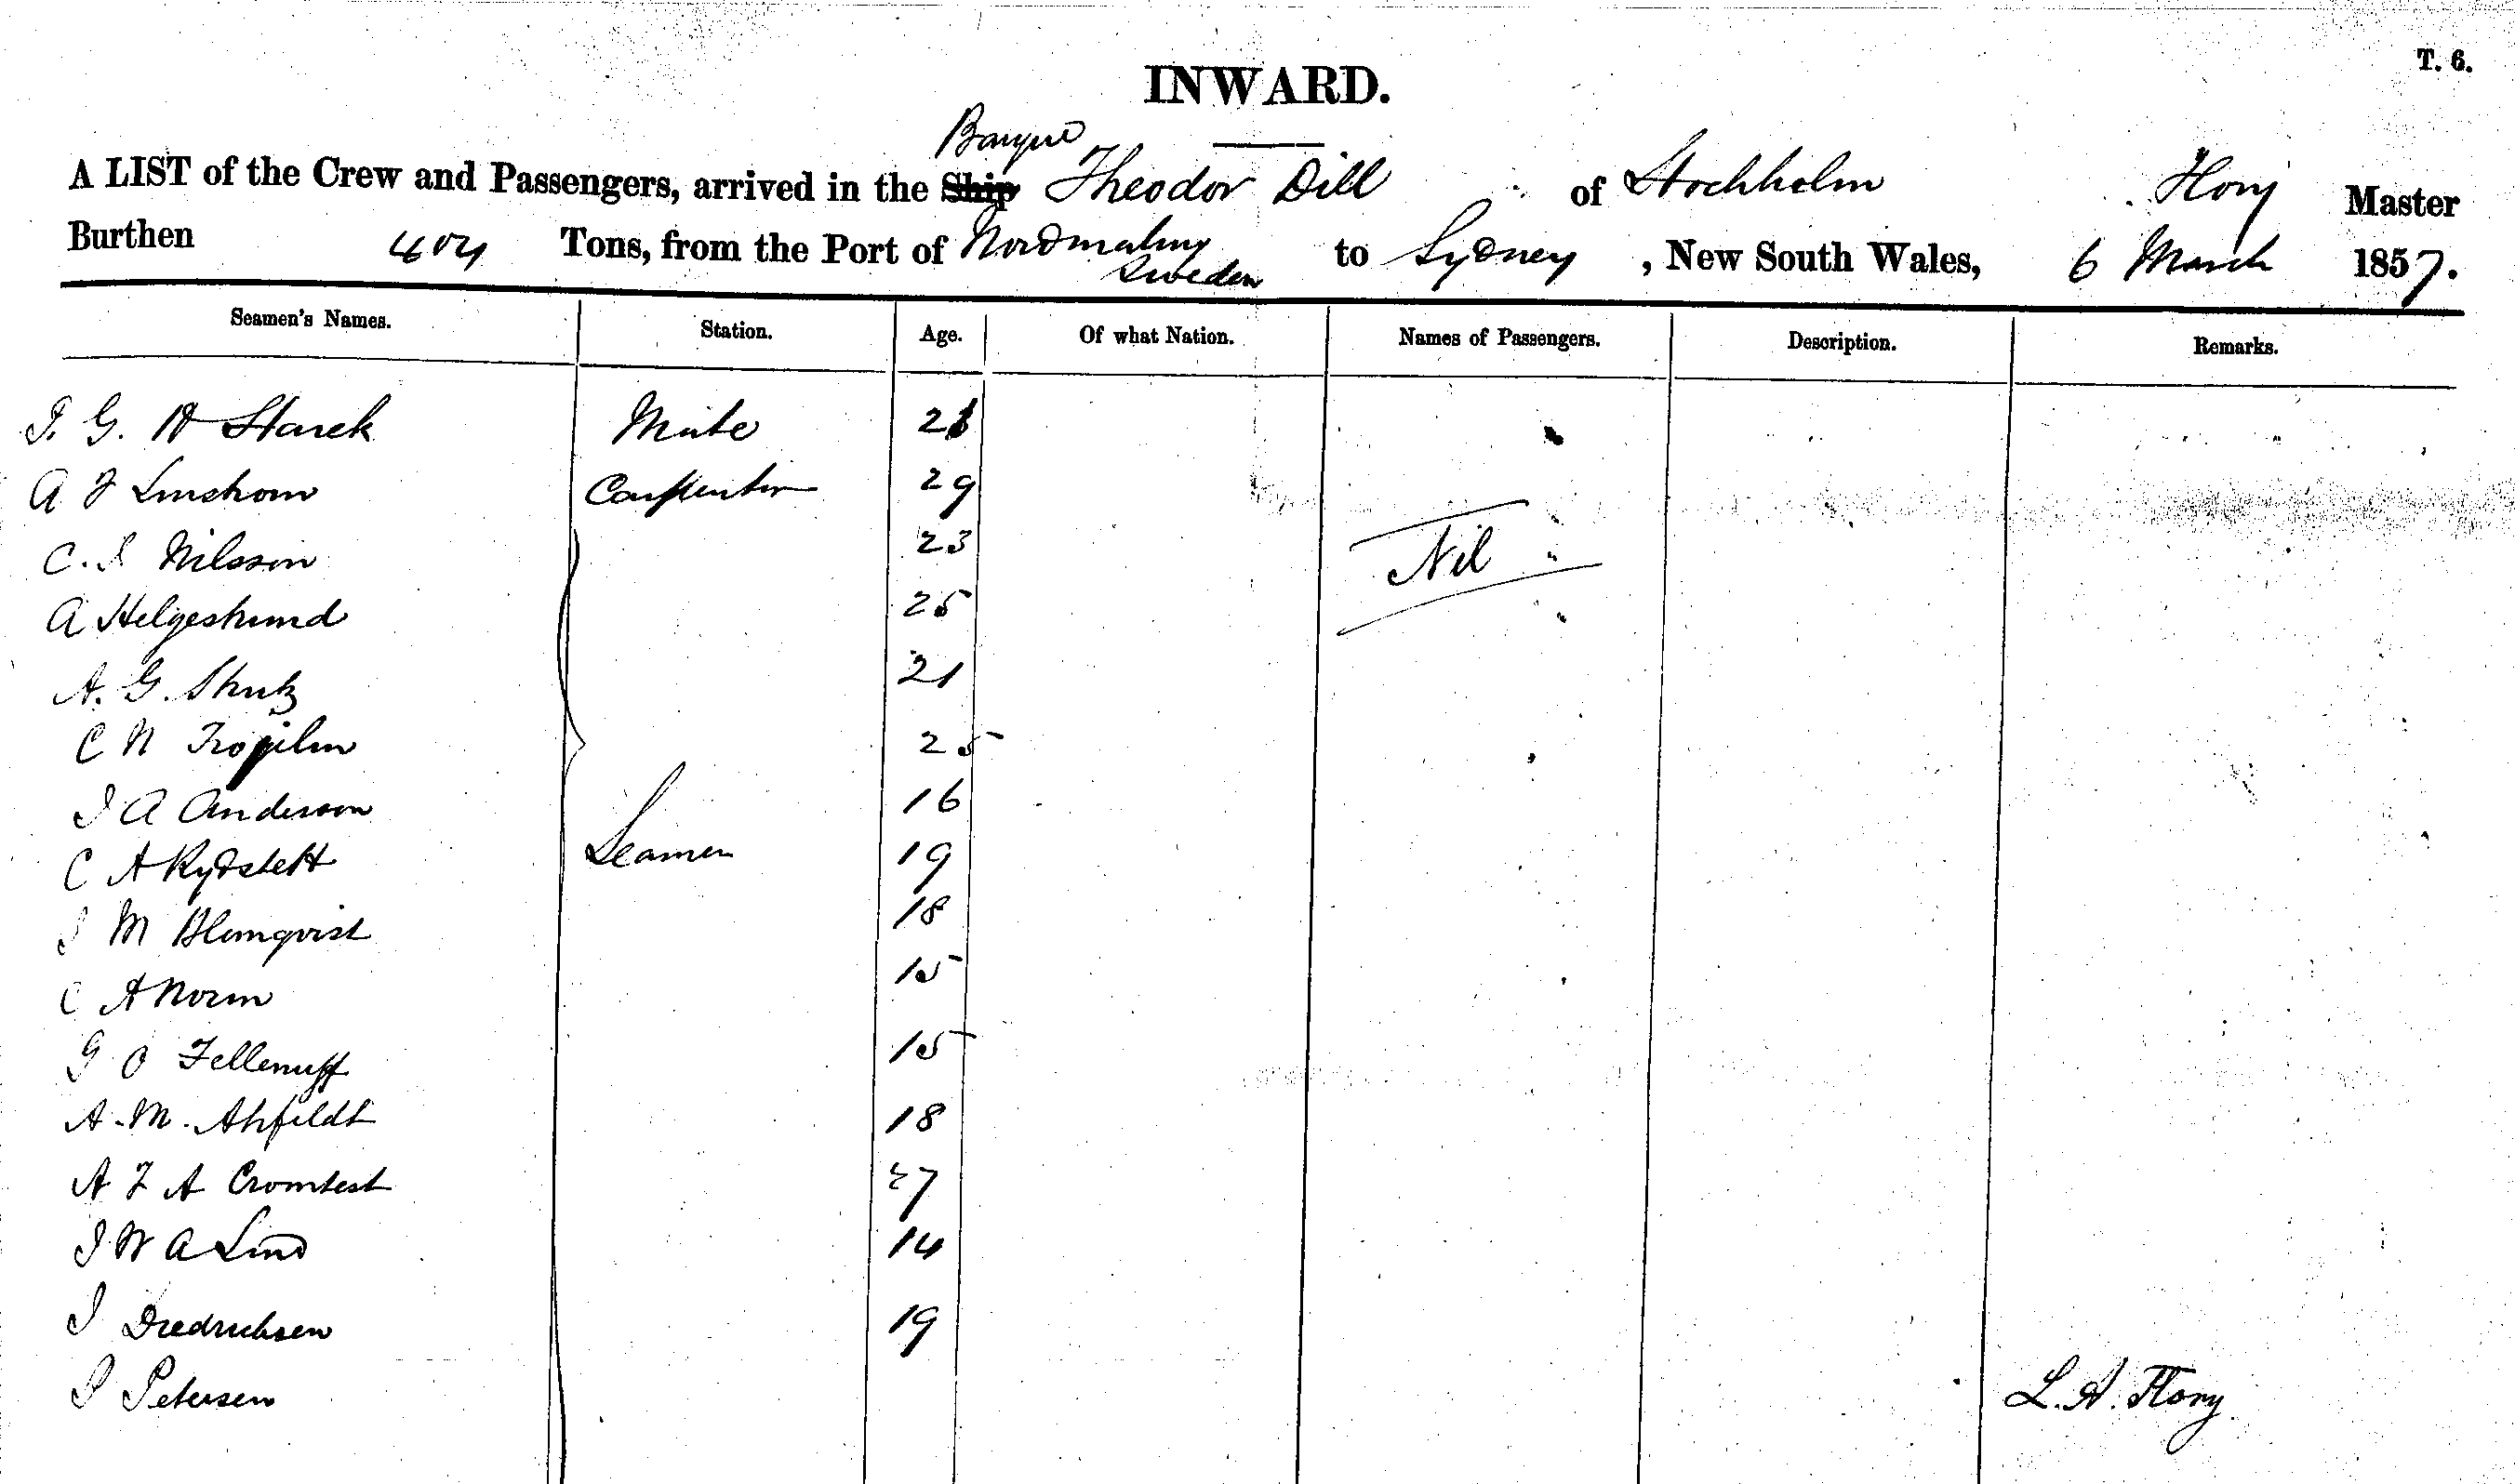 T. 6.
INWARD.
Barque
A LIST of the Crew and Passengers, arrived in the Ship Theodor Dill of Stockholm Flory Master
Burthen 404 Tons, from the Port of Nordmaling Sweden to Sydney, New South Wales, 6 March 1857.
Seamen's Names. Station. Age. Of what Nation. Names of Passengers. Description. Remarks.
J. G. W Starck Mate
A F Linstrom Carpenter 29
C. J Nilsson 23 Nil
A Helgestrund 25
A. G. Shutz 21
C N 25
J A Anderson 16
C A Rydstett Seamen 19
J M Blomqvist 18
C A Norm 15
G O 15
A. M. Ahfeldt 18
A F A Cromtest 27
J W A Lind 14
J Diedrichsen 19
P Petersen L. A. Flory